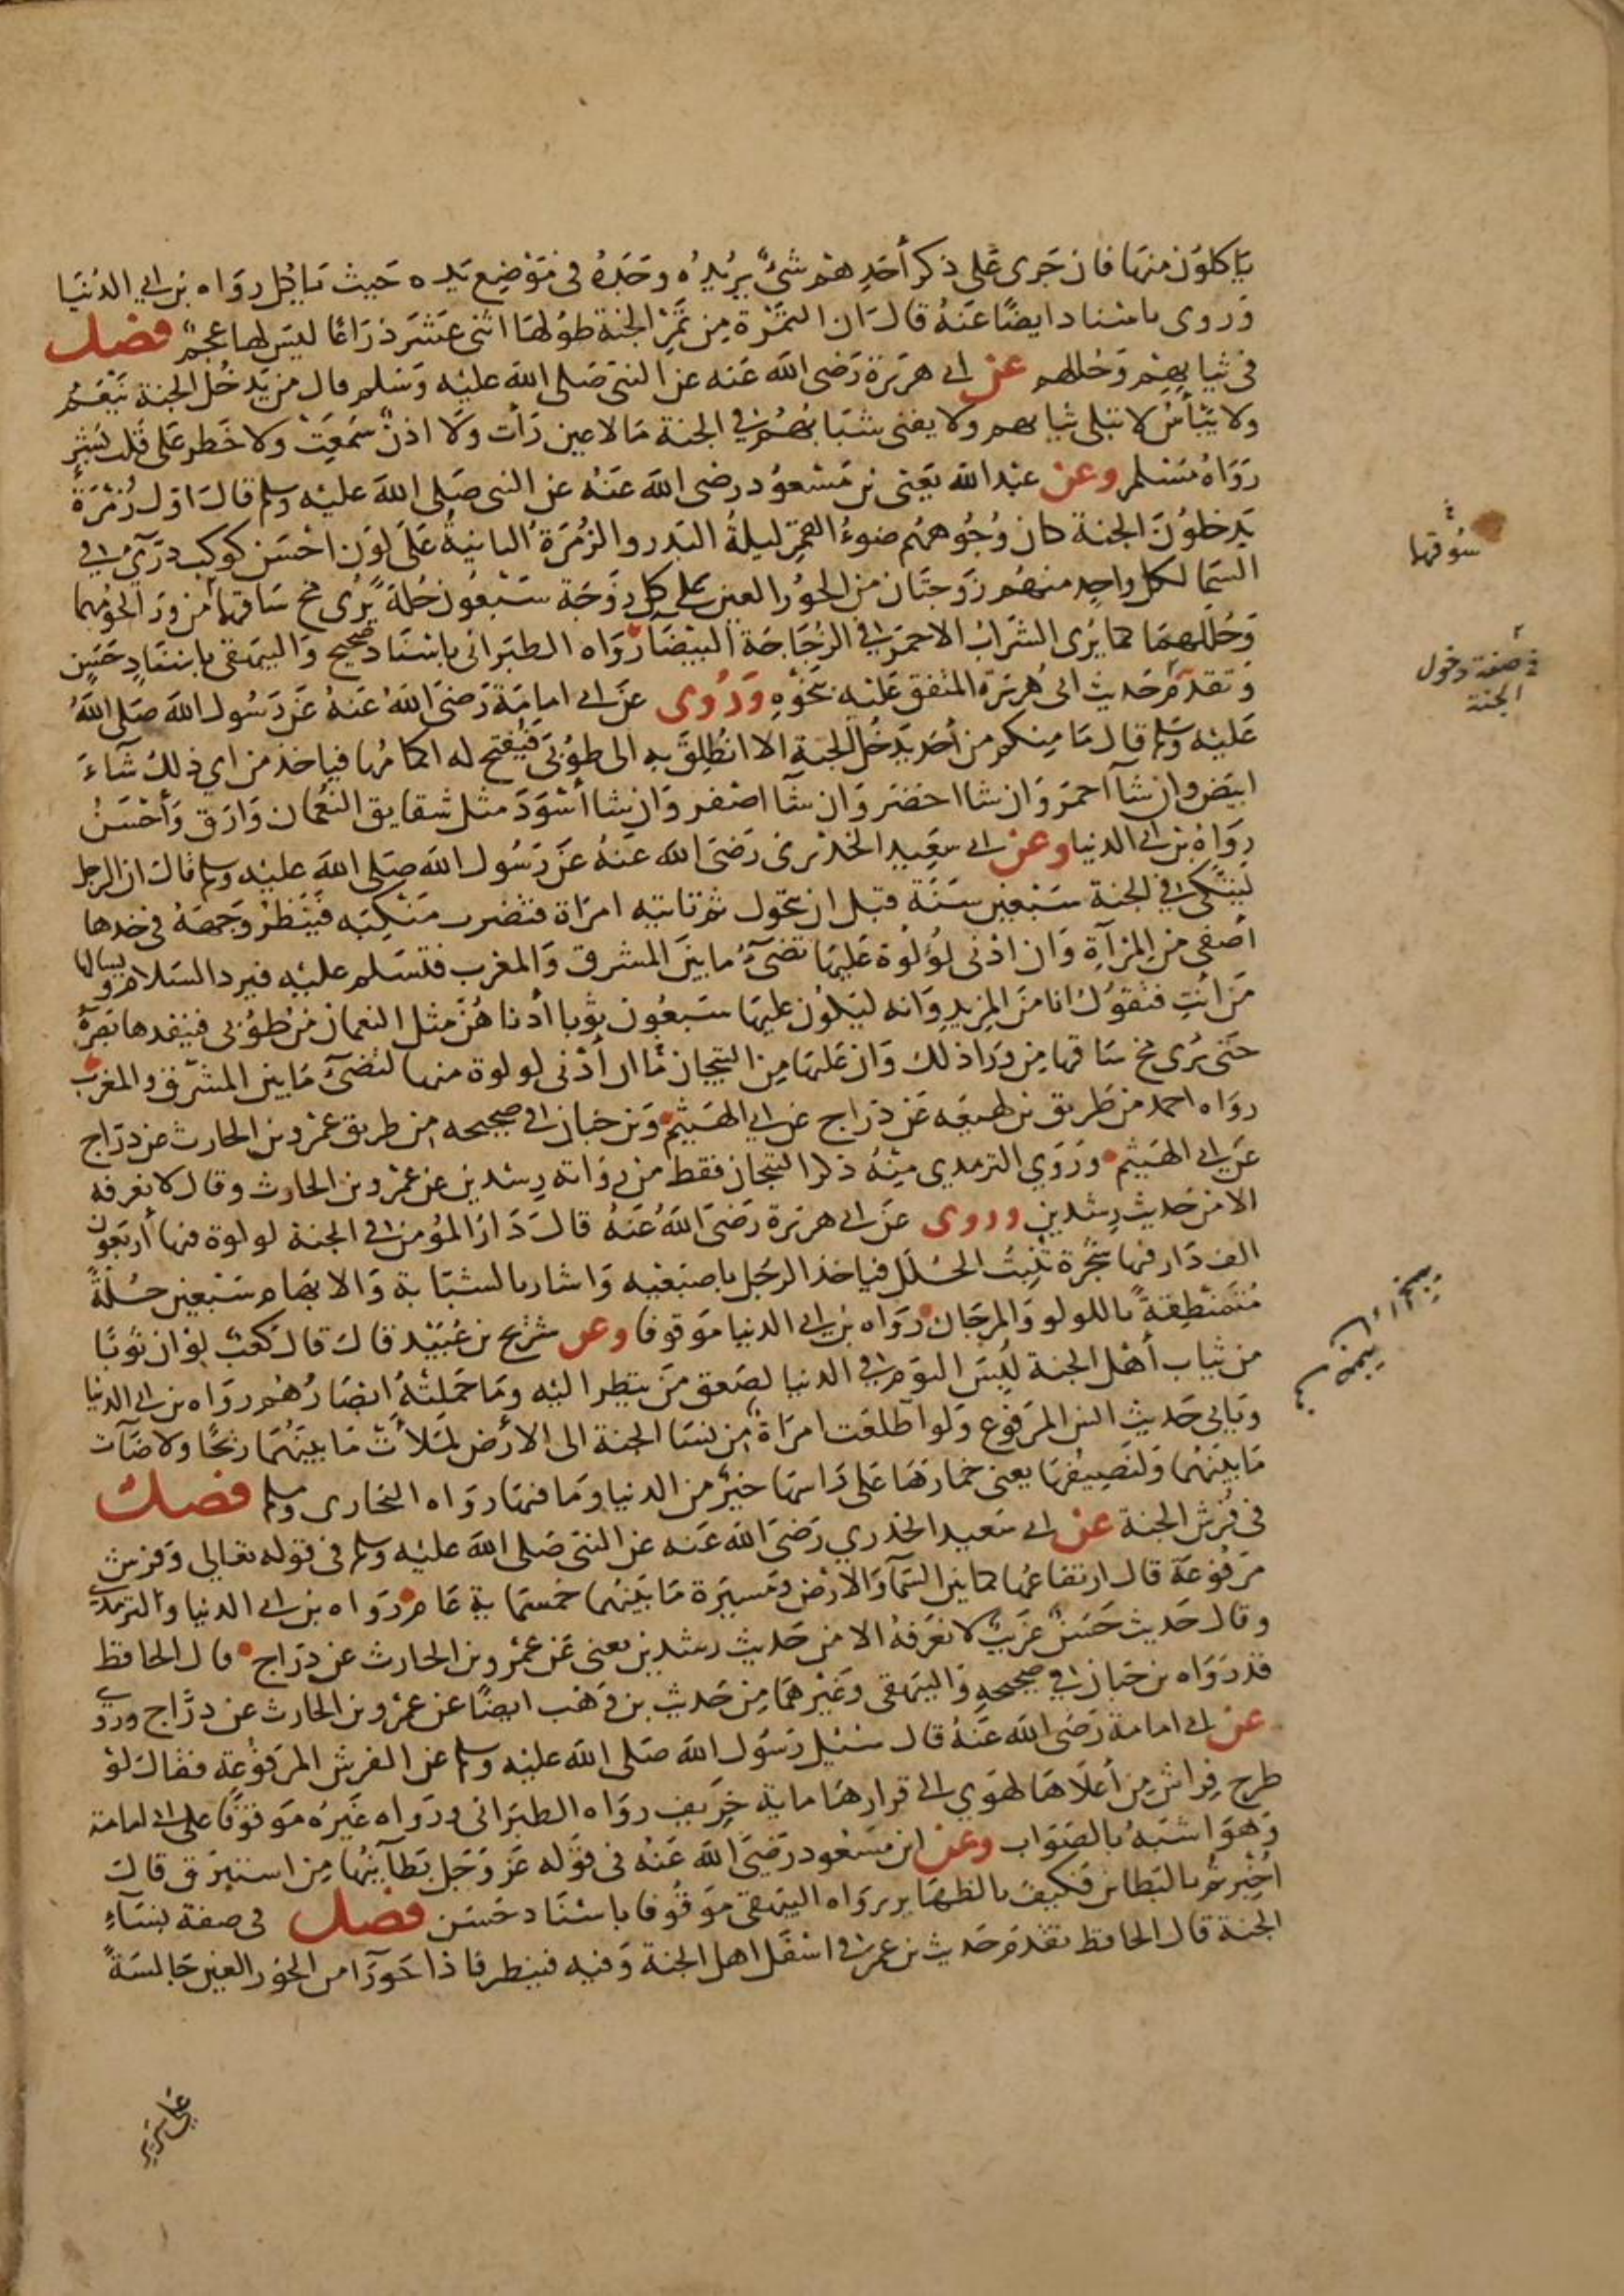 ياكلون منها فان جرى على ذكر أحدهم شئ يريده وجده في موضع يده حيث ياكل رواه بن ابي الدنيا
وروى باسناده ايضًا عنه قال ان التمرة من تمر الجنة طولها اثنى عشر ذراعًا ليس لها عجم فصل
في ثيابهم وحللهم عن ابي هريرة رضى الله عنه عن النبي صلى الله عليه وسلم قال من يدخل الجنة ينعم
ولا يبأس لا تبلى ثيابهم ولا يفنى شبابهم في الجنة مالا عين رأت ولا اذن سمعت ولا خطر على قلب بشر
رواه مسلم وعن عبد الله يعنى بن مسعود رضى الله عنه عن النبي صلى الله عليه وسلم قال اول زمرة
يدخلون الجنة كان وجوههم ضوء القمر ليلة البدر والزمرة الثانية على لون احسن كوكب درّي في
السما لكل واحد منهم زوجتان من الحور العين على كل زوجة سبعون حلة يُرى مخ ساقها من ورا لحومهما
وحللهما كما يُرى الشراب الاحمر في الزجاجة البيضا رواه الطبراني باسناد صحيح والبيهقي باسناد حسن
وتقدم حديث ابي هريرة المتفق عليه بنحوه وروى عن ابي امامة رضى الله عنه عن رسول الله صلى الله
عليه وسلم قال ما منكم من أحد يدخل الجنة الا انطلق به الى طوبى فيفتح له اكمامها فياخذ من اي ذلك شآء
ابيض وان شآ احمر وان شا اخضر وان شآ اصفر وان شا أسود مثل شقايق النعمان وارق وأحسن
رواه بن ابي الدنيا وعن ابي سعيد الخدري رضى الله عنه عن رسول الله صلى الله عليه وسلم قال ان الرجل
ليتكى في الجنة سبعين سنة قبل ان يتحول ثم تاتيه امراة فتضرب منكبه فينظر وجهه في خدها
أصفى من المرآة وان ادنى لؤلوة عليها تضيء ما بين المشرق والمغرب فتسلم عليه فيرد السلام ويسالها
من أنتِ فتقول انا من المزيد وانه ليكون عليها سبعون ثوبا أدناهن مثل النعمان من طوبى فينفدها بصره
حتى يرى مخ ساقها من ورا ذلك وان عليها من التيجان ما ان أدنى لولوة منها لتضيء ما بين المشرق والمغرب
رواه احمد من طريق بن لهيعه عن دراج عن ابي الهيثم وبن حبان في صحيحه من طريق عمرو بن الحارث عن دراج
عن ابي الهيثم وروى الترمدي منه ذكر التيجان فقط من رواته رشدين عن عمرو بن الحارث وقال لا نعرفه
الا من حديث رشدين وروى عن ابي هريرة رضى الله عنه قال دار المؤمن في الجنة لولوة فيها أربعون
الف دار فيها شجرة تُنبِتُ الحُلل فياخذ الرجل باصبعيه واشار بالسبابة والابهام سبعين حُلةً
مُتمنطِقةً باللولو والمرجان رواه بن ابي الدنيا موقوفا وعن شريح بن عبيد قال قال كعب لو ان ثوبًا
من ثياب أهل الجنة لُبس اليوم في الدنيا لصعق من ينظر اليه وما حملته ابصارهم رواه بن ابي الدنيا
وياتي حديث انس المرفوع ولو اطلعت امراة من نسا الجنة الى الأرض لملأت ما بينهما ريحًا ولاضآت
ما بينهما ولنصيفها يعنى خمارها على راسها خير من الدنيا وما فيها رواه البخارى ومسلم فصل
في فُرش الجنة عن ابي سعيد الخدري رضى الله عنه عن النبي صلى الله عليه وسلم في قوله تعالى وفرش
مرفوعة قال ارتفاعها كما بين السمآ والارض ومسيرة ما بينهما خمسماية عام رواه بن ابي الدنيا والترمدي
وقال حديث حسن غريب لا نعرفه الا من حديث رشدين يعنى عن عمرو بن الحارث عن دراج قال الحافظ
قد رواه بن حبان في صحيحه والبيهقى وغيرهما من حديث بن وهب ايضًا عن عمرو بن الحارث عن درّاج وروي
عن ابي امامة رضى الله عنه قال سئيل رسول الله صلى الله عليه وسلم عن الفرش المرفوعة فقال لو
طرح فراش من أعلاها لهوي الى قرارها ماية خريف رواه الطبراني ورواه غيره موقوفًا على ابي امامة
وهو اشبه بالصواب وعن ابن مسعود رضى الله عنه في قوله عز وجل بطآينها من استبرق قال
اُخبرتم بالبطاين فكيف بالظهاير رواه البيهقى موقوفا باسناد حسن فصل في صفة نسآء
الجنة قال الحافظ تقدم حديث بن عمر في اسفل اهل الجنة وفيه فينظر فاذا حورآ من الحور العين جالسة
سُوقها
في صفة دخول
الجنة
على سرير